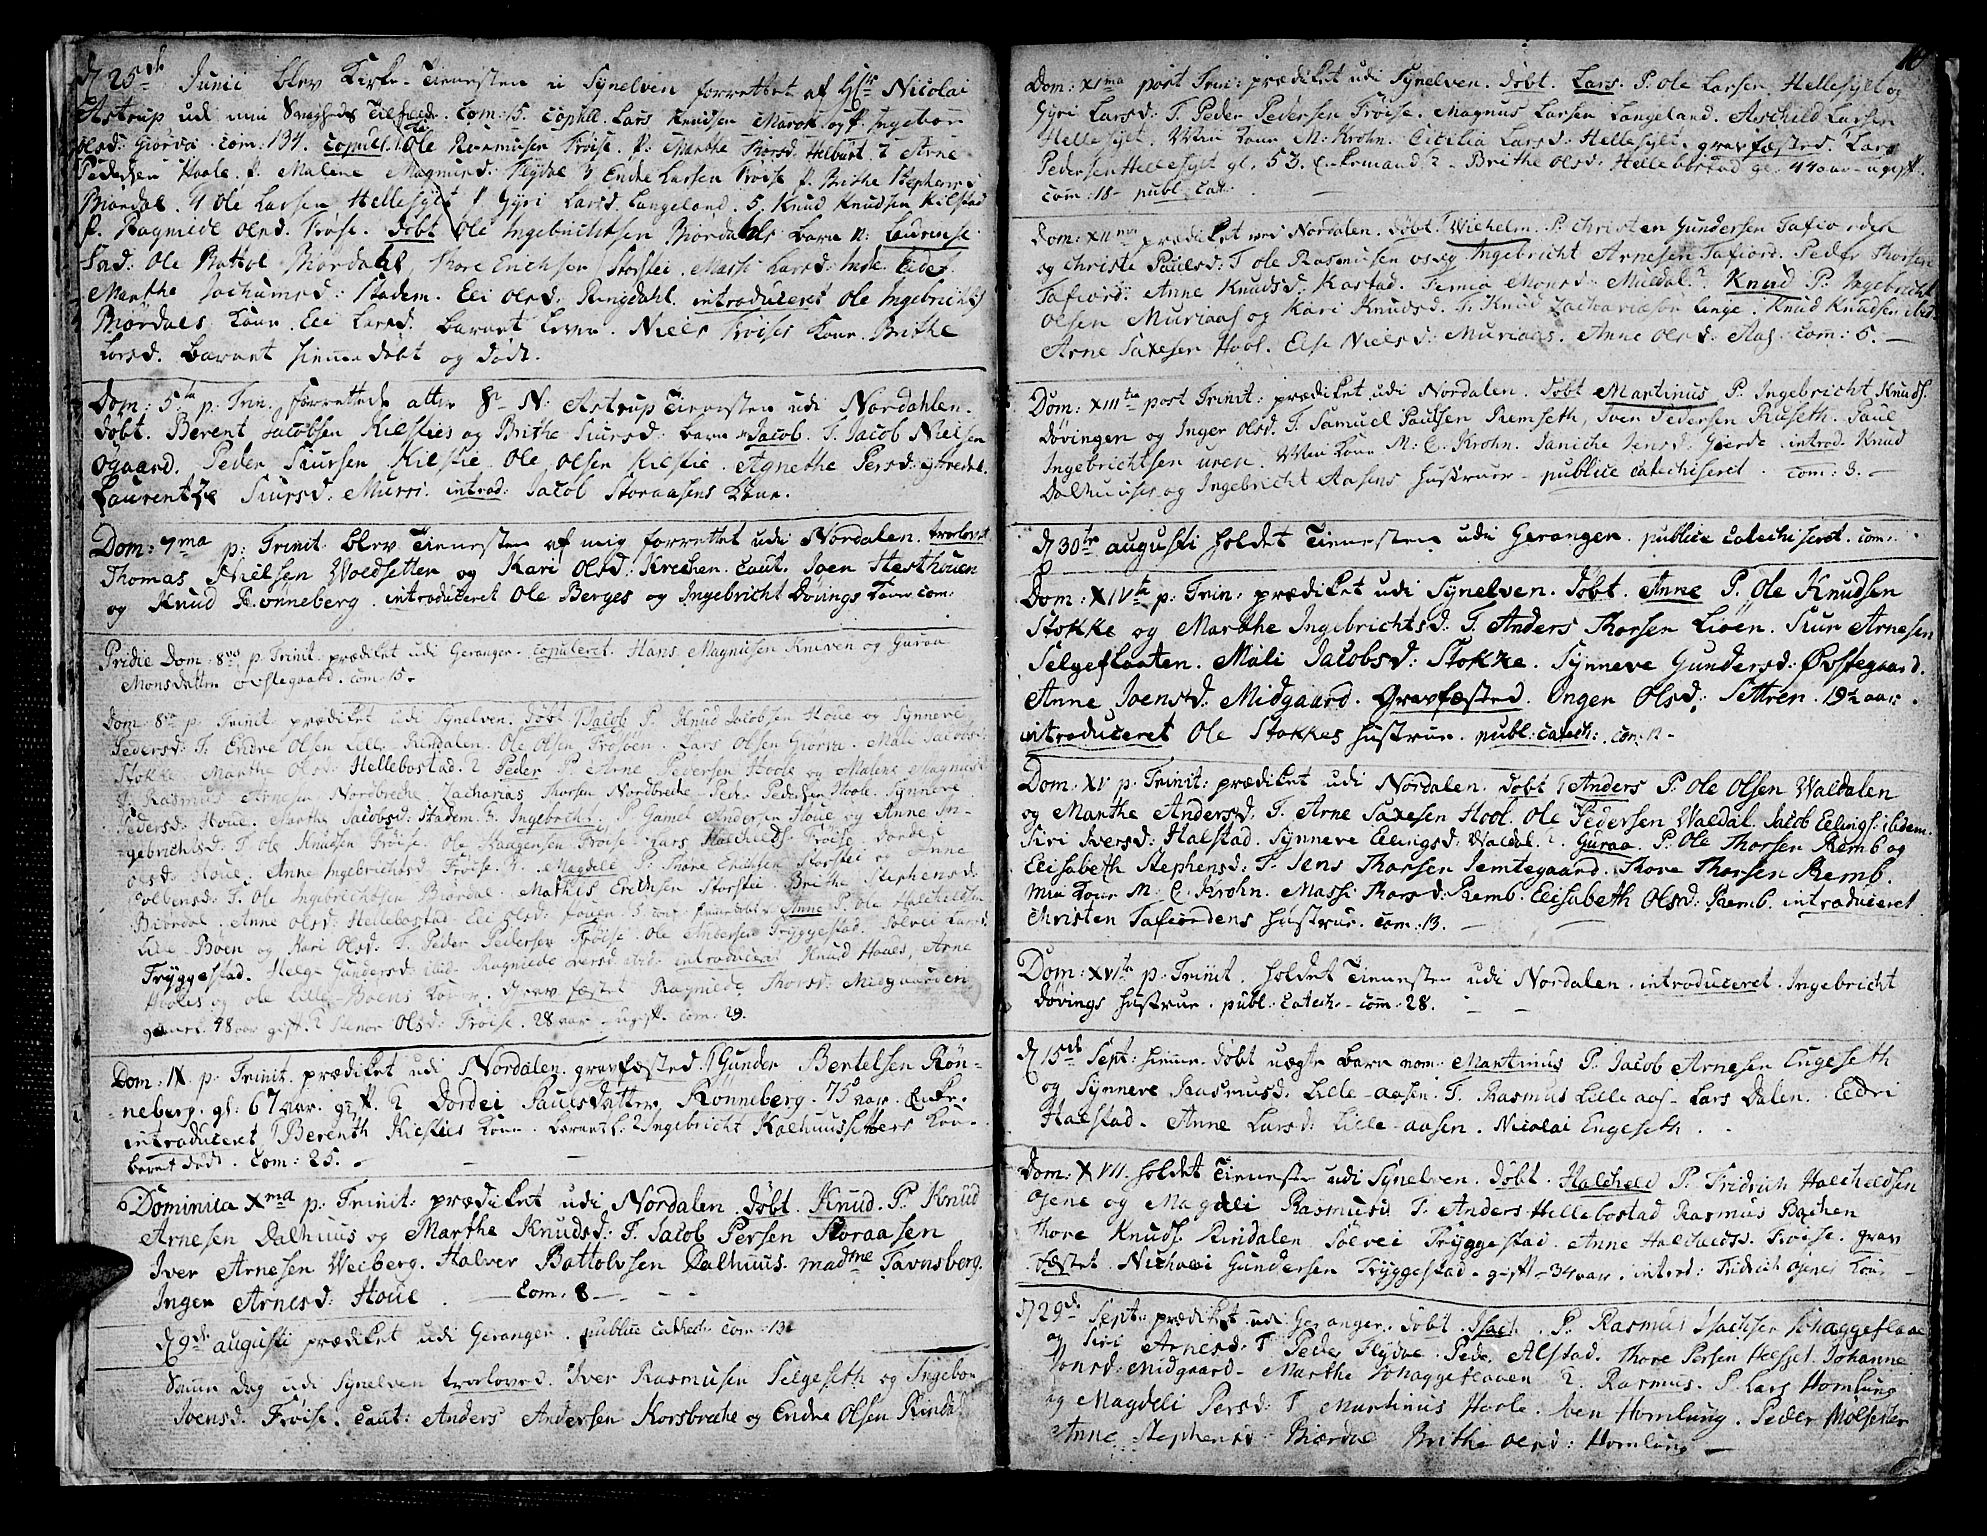 d 25de Junii blev Kirke-Tienesten i Synelven forrettet af Hr Nicolai
Astrup udi min Svagheds Tilfælde. com: 15. Lars Knudsen Marok og P. Ingebor
Olsd: Giørva. com: 134. copul. Ole Rasmusen Frøise. P: Marthe Torsd. 2 Arne
Pedersen Hoole. P. Malene Magnusd: Flydal 3 Endre Larsen Frøise P. Brithe Stephensd
Biørdal. 4 Ole Larsen Hellesylt P Gyri Larsd: Langeland. 5. Knud Knudsen Kilstad
P. Ragnilde Olsd. Frøise. Døbt Ole Ingebrichtsen Biørdals barn N: Laurense
Fad: Ole Battol. Biørdahl, Thore Erichsen Storstei. Marti Larsd: Inde Eidet.
Marthe Jochumsd: Stadem. Eli Olsd. Ringdahl. introduceret Ole Ingebrichts
Biørdals Kone. Eli Larsd. barnet lever. Niels Frøises Kone. Brithe
Larsd. barnet hiemme døbt og død.
Dom: 5ta p. Trin. forrettede atter Hr N. Astrup Tienesten udi Nordahlen.
døbt. Berent Jacobsen Kilsties og Brithe Siursd: barn Jacob. F. Jacob Nielsen
Øgaard. Peder Siursen Kilstie. Ole Olsen Kilstie. Agnethe Persd: Ytredal.
Laurentze Siursd. Murri. introd: Jacob Storaasens Kone.
Dom: 7ma p: Trinit. blev Tienesten af mig forrettet udi Nordalen. trolovet
Thomas Nielsen Voldsetter og Kari Olsd: Krechen. Caut. Joen Hesthouen
og Knud Rønneberg. introduceret Ole Berges og Ingebricht Døvings Koner com:
Pridie Dom. 8va p. Trinit. prædiket udi Geranger. copuleret. Hans Magnusen Kniven og Guraa
Monsdatter Ovstegaard. com: 15.
Dom 8va p Trinit prædiket udi Synelven. døbt 1 Jacob P. Knud Jacobsen Houe og Synneve
Pedersd: F. Endre Olsen Lille Rindalen. Ole Olsen Frosoen. Lars Olsen Giorva. Mali Jacobsd
Stokke. Marthe Olsd: Hellebostad. 2 Peder P. Arne Pedersen Hoole og Malene Magnusd
F. Rasmus Arnesen Nordbreche Zacharias Thorsen Nordbreche Peder Pedersen Hoole. Synneve
Pedersd: Houe. Marthe Jacobsd: Stadem. 3. Ingebricht P Gamel Andersen Houe og Anne In-
gebrichtsd. F Ole Knudsen Frøise. Ole Haagensen Frøise. Lars Halchelds. Frøise. Dorde
Olsd: Houe. Anne Ingebrichtsd Frøise. 4. Magdele P. Thore Erichsen Storstei og Anne
F. Ole Ingebrichtsen Biørdal. Mathis Erichsen Storstei. Brithe Stephensd.
Biørdal. Anne Olsd: Hellebostad Eli Olsd: 5. Anne P. Ole Halcheldsen
Lille Boen og Kari Olsd: F. Peder Pedersen Frøise. Ole Andersen Tryggestad. Solvei Larsd.
Tryggestad. Helge Gundersd: ibid. Ragnilde Iversd ibid. introduceret Knud Houes, Arne
Hooles og Ole Lille-Boens Koner. Grav fæstet Ragnilde Thorsd: Midgaarden
48 aar gift. 2 Olsd: Frøise. 28 aar ugift. com: 29.
Dom: IX p. Trinit. prædiket udi Nordalen. gravfæsted 1 Gunder Bertelsen Røn-
neberg. gl: 67 aar. gift. 2 Dordei Paulsdatter Rønneberg. 75 aar.
introduceret 1 Berenth Kilsties Kone. barnet l. 2 Ingebricht Kalhuussetters Kone.
barnet død. Com: 25.
Dominica Xma p: Trinit: prædiket udi Nordalen. Døbt. Knud. P. Knud
Arnesen Dalhuus og Marthe Knudsd: F. Jacob Persen Storaasen
Iver Arnesen Veiberg. Halvor Battolvsen Dalhuus. madme Tavnsberg.
Inger Arnesd: Houe. Com: 8
d 9de augusti prædiket udi Geranger. publice cathech: com: 13
Samme dag udi Synelven troloved. Iver Rasmusen Selgeseth og Ingebor
Joensd. Frøise. Caut: Anders Andersen Korsbreche og Endre Olsen Rindal
Dom: XIma post Trin: prædiket udi Synelven. døbt. Lars. P. Ole Larsen Hellesylt og
Gyri Larsd: F. Peder Pedersen Frøise. Magnus Larsen Langeland. Ascheld Larsen
Hellesylt. Min Kone M: Krohn. Cicilia Larsd: Hellesylt. gravfæsted. Lars
Pedersen Hellesylt gl. 53. 2. Brithe Olsd: Hellebostad gl. 44 aar ugift.
Com: 18 publ: cat.
Dom: XIIma prædiket ved Nordalen. døbt. 1 Wichelm. P. Christen Gundersen Tafiorden
og Christi Paulsd: F. Ole Rasmusen Ingebricht Arnesen Tafiord. Peder Thorsen
Tafiord. Anne Knudsd. Kastad. Temia Monsd: Muldal. 2. Knud P. Ingebricht
Olsen Muriaas og Kari Knudsd. F. Knud Zachariæson Linge. Knud Knudsen ibid.
Arne Saxesen Hool. Else Nielsd: Muriaas. Anne Olsd: Aas. com: 5.
Dom: XIIItia post Trinit: prædiket udi Nordalen. døbt Martinus P. Ingebricht Knuds.
Døvingen og Inger Olsd. F. Samuel Paulsen Remseth, Iver Pedersen Ruseth. Paul
Ingebrichtsen Uren. Min Kone M: C. Krohn. Janiche Jensd: Gierde. introd. Knud
Dalhuuses og Ingebricht Aasens Hustruer. publice catechiseret. com: 3.
d 30te augusti holdet Tienesten udi Geranger. publice catechiseret. com:
Dom: XIVta p: Trin: prædiket udi Synelven. Døbt. Anne P. Ole Knudsen
Stokke og Marthe Ingebrichtsd: F. Anders Thorsen Lioen. Siur Arnesen
Selgeflaaten. Mali Jacobsd: Stokke. Synneve Gundersd: Øvstegaard.
Anne Joensd. Midgaard. Gravfæsted. Inger Olsd: Settren. 19½ aar.
introduceret Ole Stokkes Hustrue. publ: catech: com: 12
Dom: XV p: Trinit: prædiket udi Nordalen. døbt 1 Anders P. Ole Olsen Waldalen
og Marthe Andersd. F. Arne Saxesen Hool. Ole Pedersen Valdal. Jacob Ellings: ibidem.
Siri Iversd: Halstad. Synneve Ellingsd: Valdal. 2. Guraa P. Ole Thorsen Remb og
Elisabeth Stephensd: F. Jens Thorsen Jemtegaard. Thore Thorsen Remb.
Min Kone M. C. Krohn. Massi Thorsd: Remb. Elisabeth Olsd: Remb. introduceret
Christen Tafiordens Hustrue. Com: 13.
Dom: XVIta p: Trinit. holdet Tienesten udi Nordalen. introduceret. Ingebricht
Døvings Hustrue. publ: catech. com: 28.
d 15de Sept: hiemme døbt uægte barn nom: Martinus P. Jacob Arnesen Engeseth
og Synneve Rasmusd: Lille-aasen. F. Rasmus Lille aas. Lars Dalen. Eldri
Halstad. Anne Larsd: Lille-aasen. Nicolai Engeseth.
Dom: XVII. holdet Tieneste udi Synelven. Døbt. Halcheld P. Fridrich Halcheldsen
Ojene og Magdeli Rasmusd F. Anders Hellebostad Rasmus Bachen
Thore Knuds. Rindalen Solvei Tryggestad. Anne Halcheldsd. Frøise. grav
fæstet. Nicholai Gundersen Tryggestad. gift 34 aar. introd: Fridrich Ojenes Kone
d 29de Sept: prædiket udi Geranger. døbt. Isach. P. Rasmus Isachsen Skaggeflaae
og Siri Arnesd: F Peder Flydal. Peder Alstad. Thore Persen Hesset. Johanne
Jonsd: Midgaard. Marthe Skaggeflaaen 2. Rasmus. P. Lars Homlung
og Magdeli Persd: F Martinus Hoole. Iven Homlung. Peder Molseter
Anne Stephensd: Biørdal Brithe Olsd: Homlung